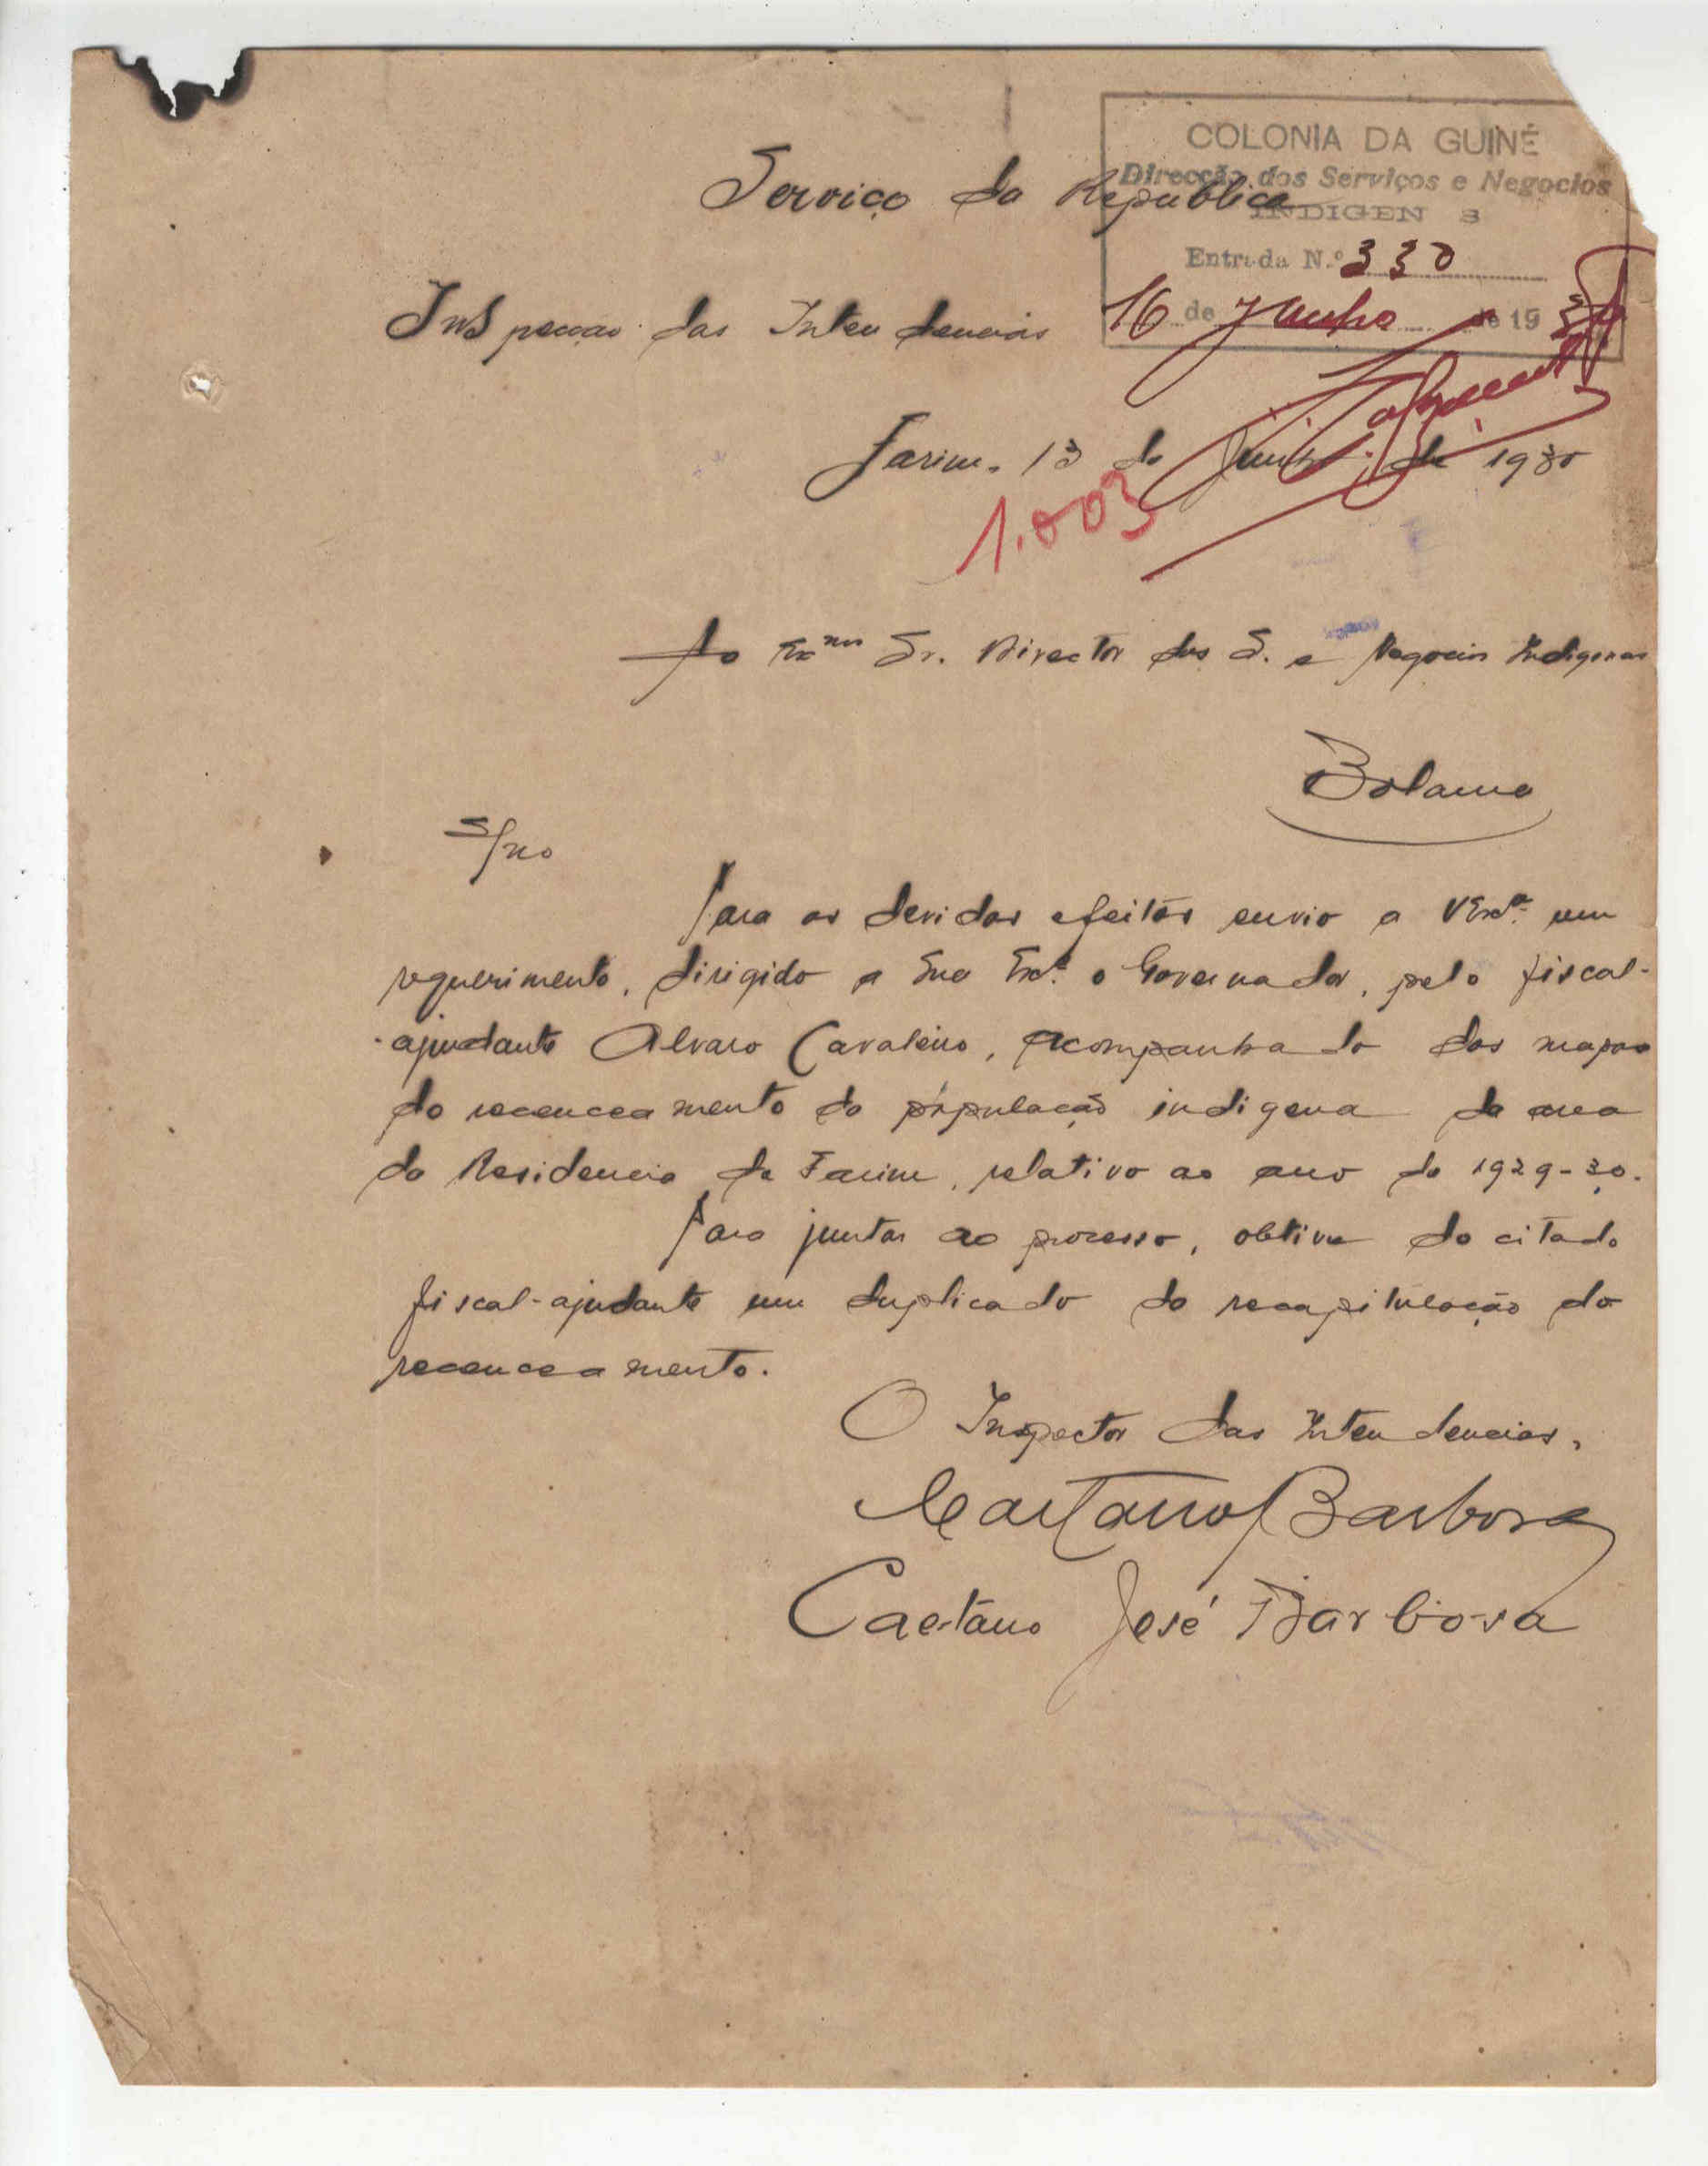 COLONIA DA GUINÉ
Direcção dos Serviços e Negocios
INDIGEN S
Serviço da Republica
Entrada N.º 330
16 de Junho de 193
Inspeccao das Intendencias
Farim, 13 de Junho de 1930
1.003
Ao Exmo Sr. Director dos S. e Negocios Indigenas
Bolama
S/no
Para os devidos efeitos envio a VExª. um
requerimento, dirigido a Sua Exª. o Governador, pelo fiscal-
-ajudante Alvaro Cavaleiro, acompanhado dos mapas
do recenceamento da população indigena da area
da Residencia de Farim, relativo ao ano de 1929-30.
Para juntar ao processo, obtive do citado
fiscal-ajudante um duplicado da recapitulação do
recenceamento.
O Inspector das Intendencias,
Caetano J Barbosa
Caetano José Barbosa